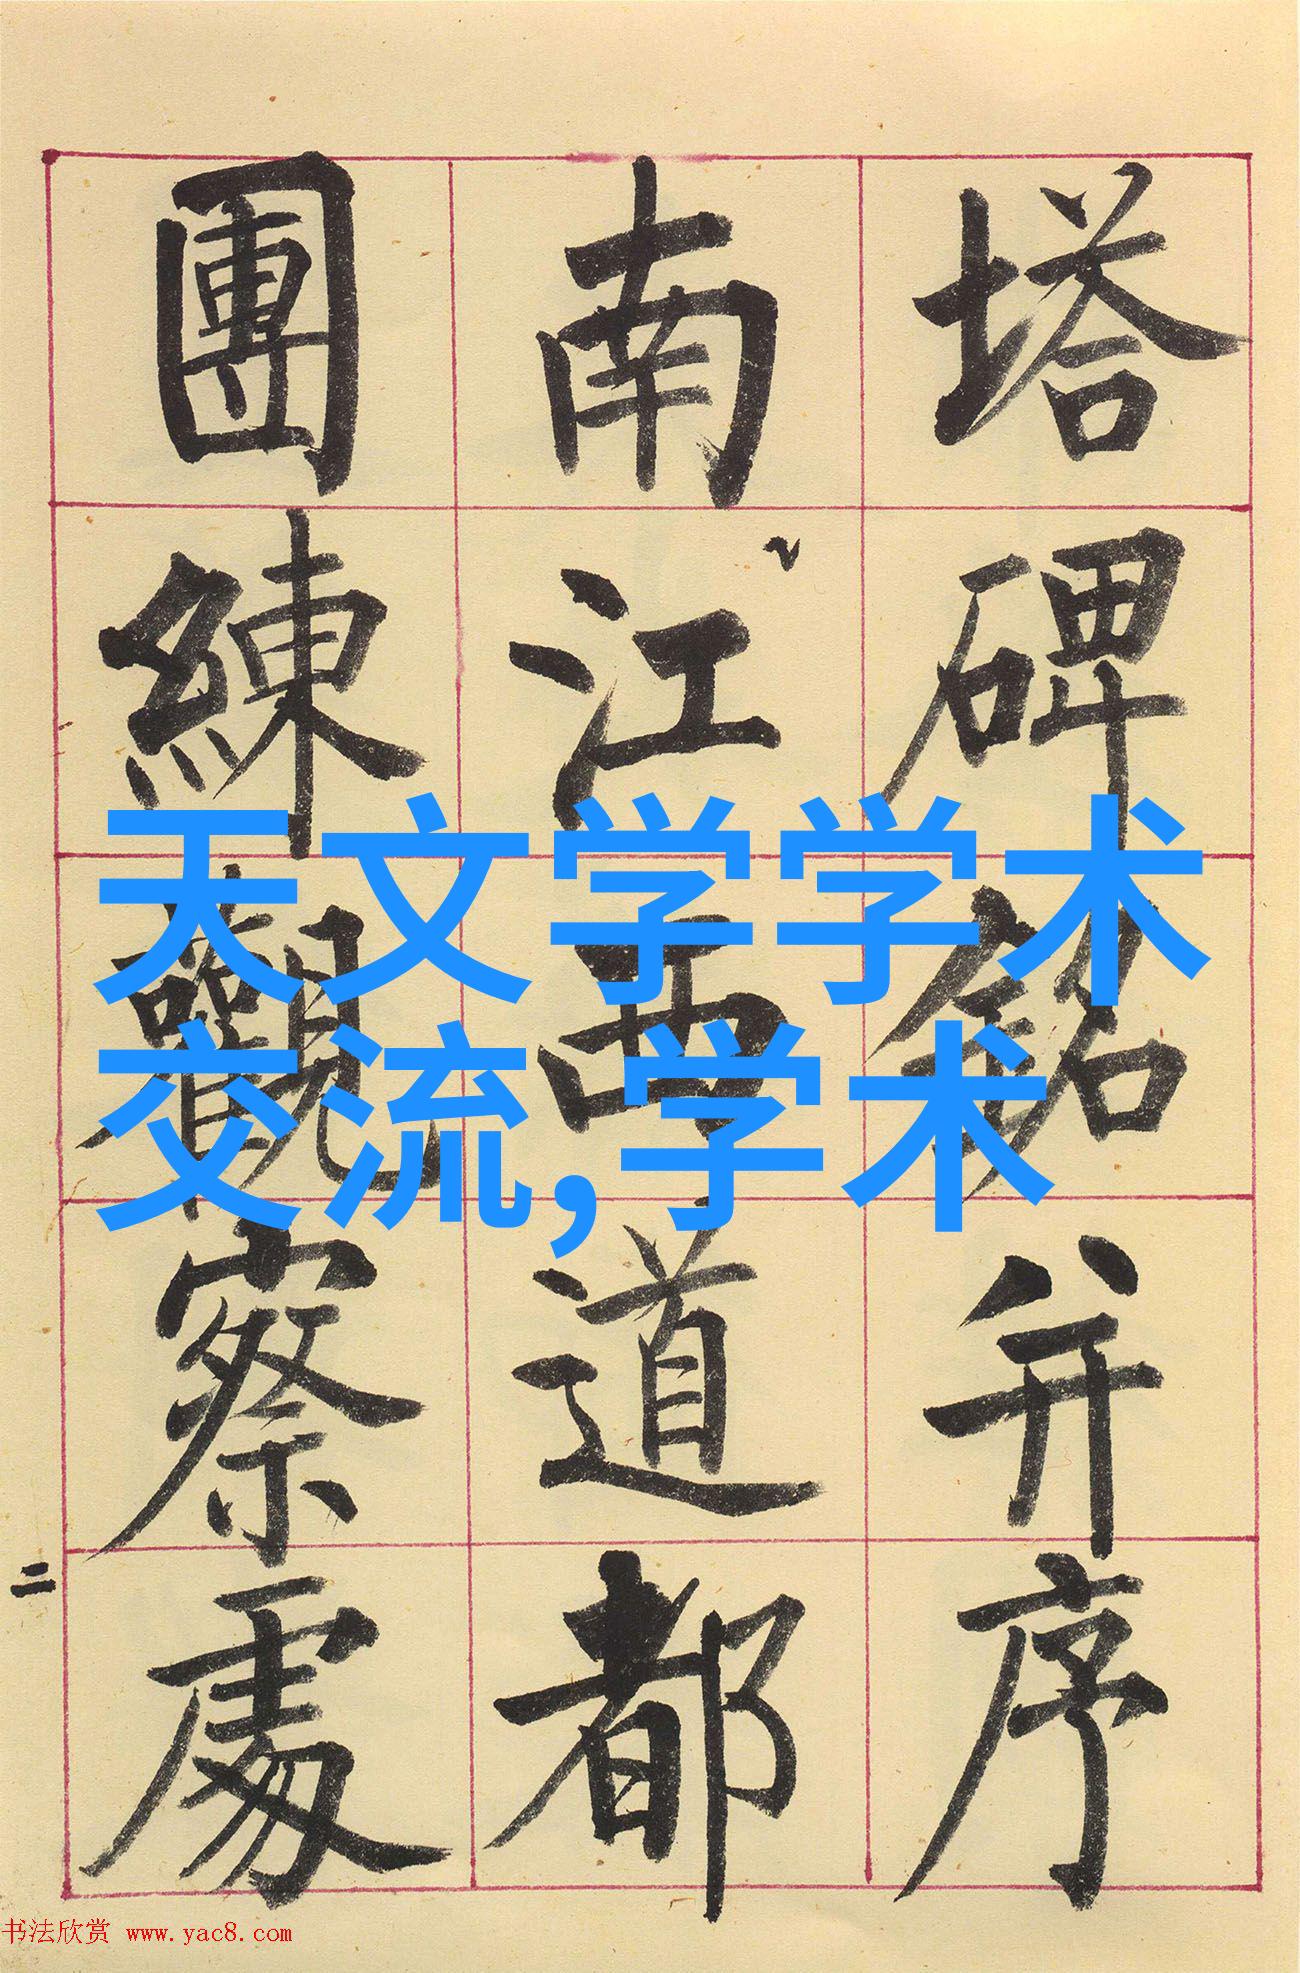 塔碑銘并序
南江西道都
團練觀察處
二
天文学学术
交流,学术
书法欣赏 www.yac8.com